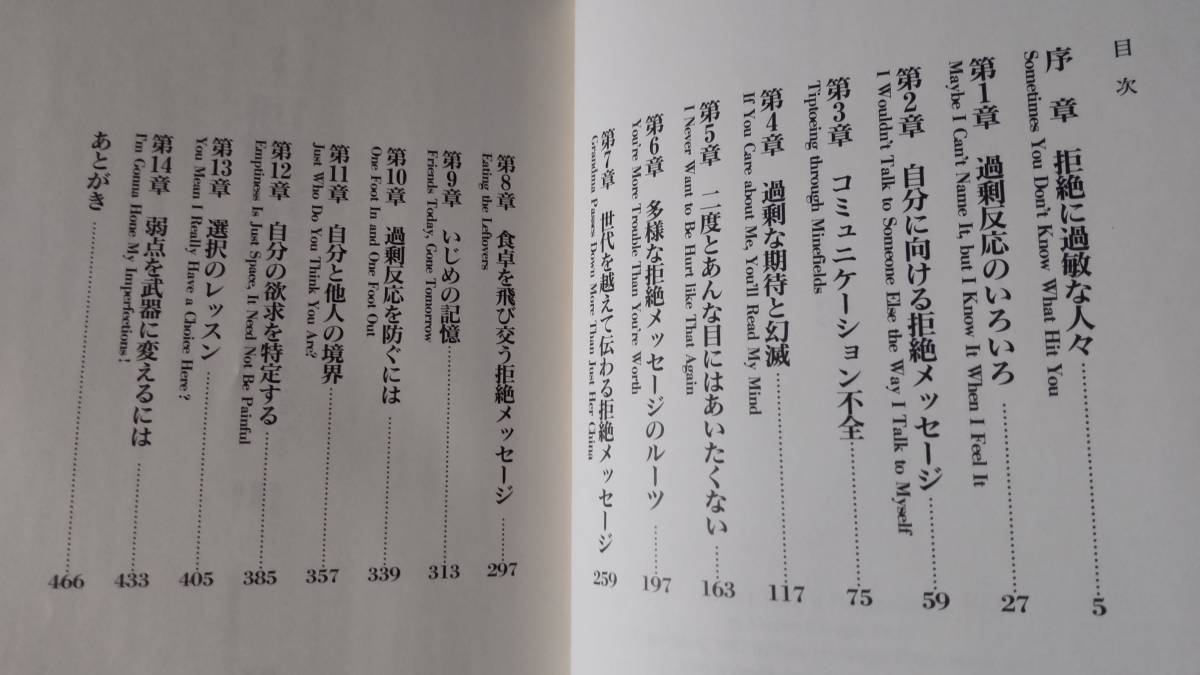 目次
序章 拒絶に過敏な人々……5
Sometimes You Don't Know What Hit You
第1章 過剰反応のいろいろ……27
Maybe I Can't Name It, but I Know It When I Feel It
第2章 自分に向ける拒絶メッセージ……59
I Wouldn't Talk to Someone Else the Way I Talk to Myself
第3章 コミュニケーション不全……75
Tiptoeing through Minefields
第4章 過剰な期待と幻滅……117
If You Care about Me, You'll Read My Mind
第5章 二度とあんな目にはあいたくない……163
I Never Want to Be Hurt like That Again
第6章 多様な拒絶メッセージのルーツ……197
You're More Trouble Than You're Worth
第7章 世代を越えて伝わる拒絶メッセージ 259
Grandma Passes Down More Than Just Her China
第8章 食卓を飛び交う拒絶メッセージ……297
Eating the Leftovers
第9章 いじめの記憶……313
Friends Today, Gone Tomorrow
第10章 過剰反応を防ぐには……339
One Foot In and One Foot Out
第11章 自分と他人の境界……357
Just Who Do You Think You Are?
第12章 自分の欲求を特定する……385
Emptiness Is Just Space, It Need Not Be Painful
第13章 選択のレッスン……405
You Mean I Really Have a Choice Here?
第14章 弱点を武器に変えるには……433
I'm Gonna Hone My Imperfections!
あとがき……466